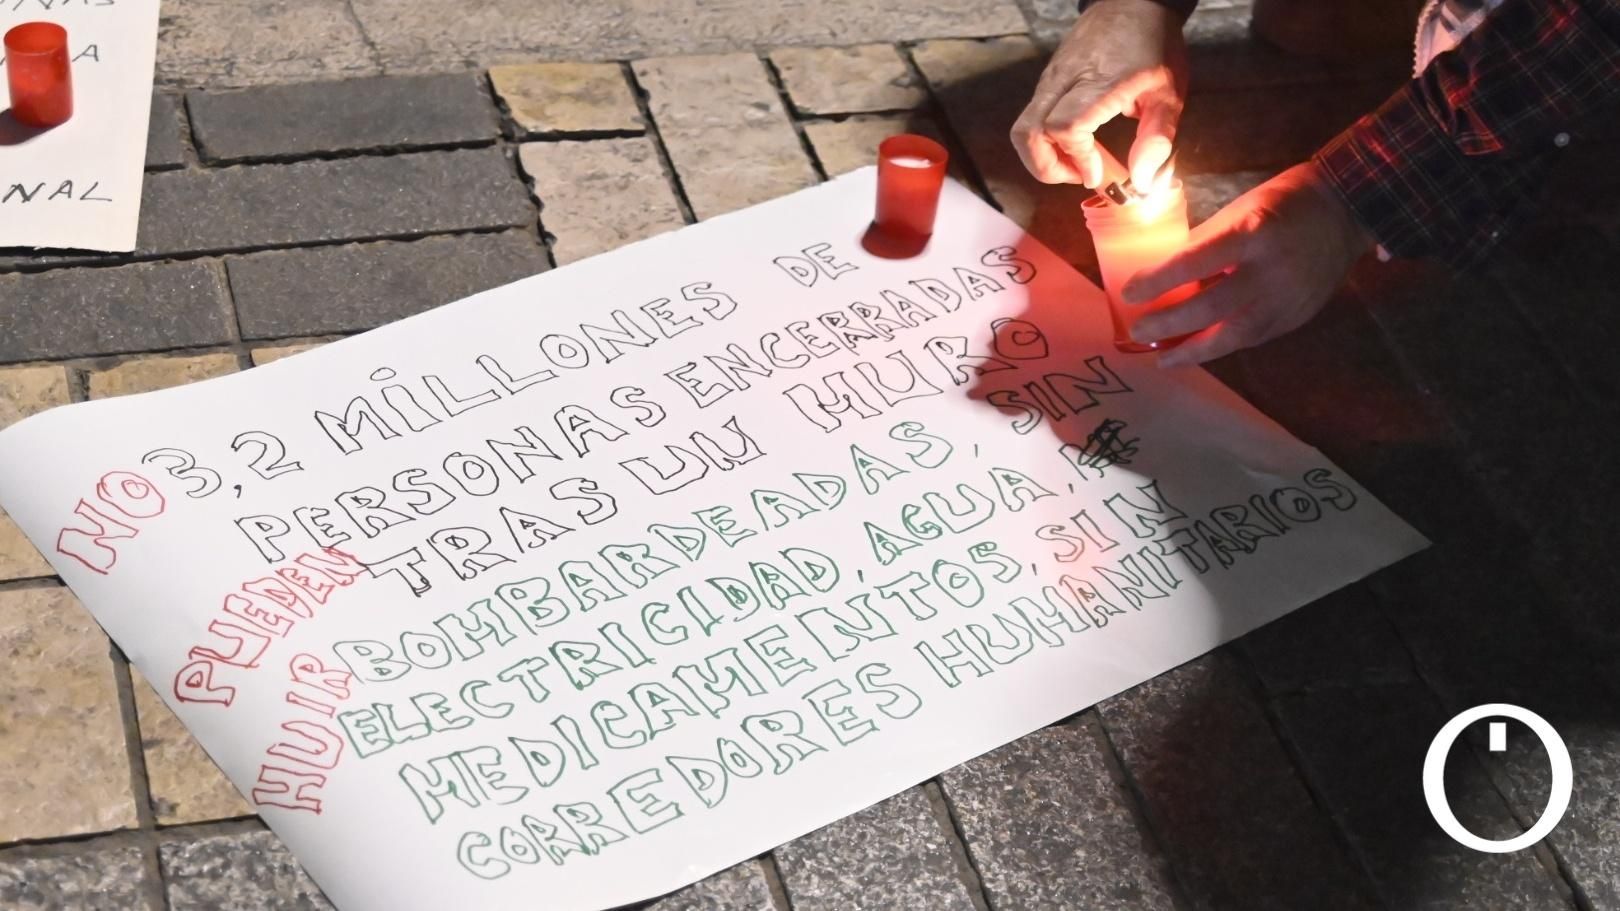 A
NAL
3,2 MiLLONES DE
PERSONAS ENCERRADAS
TRAS UN MURO
BOMBARDEADAS, SIN
ELECTRICIDAD, AGUA,
MEDICAMENTOS, SIN
CORREDORES HUMANITARIOS
NO
PUEDEN
HUIR